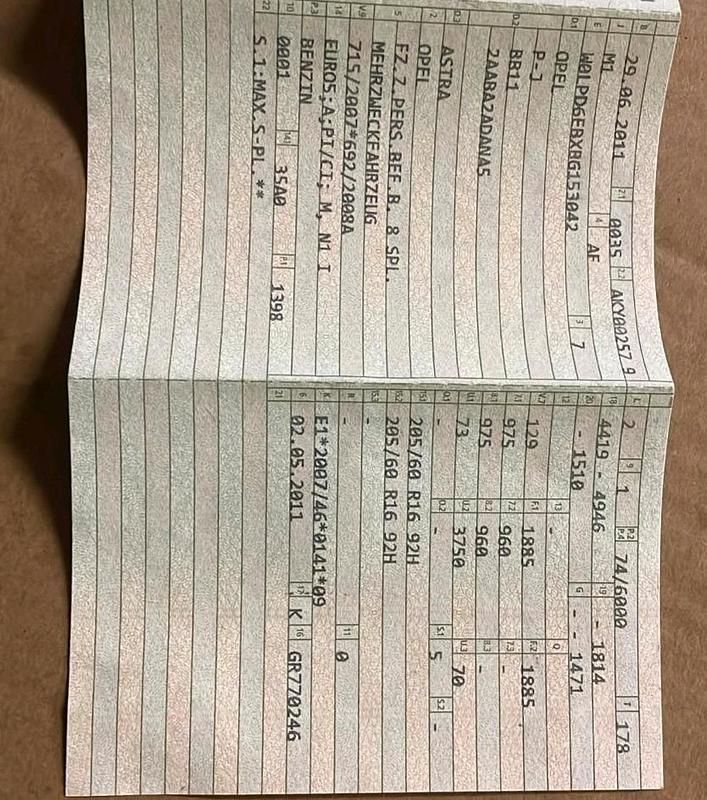 B 29.06.2011 2.1 0035 2.2 AKY00257 9
J M1 4 AF
E W0LPD6EBXBG153042 3 7
D.1 OPEL
D.2 P-J
BB11
2AABA2ADANA5
D.3 ASTRA
2 OPEL
5 FZ.Z.PERS.BEF.B. 8 SPL.
MEHRZWECKFAHRZEUG
V.9 715/2007*692/2008A
14 EURO5;A;PI/CI; M, N1 I
P.3 BENZIN
10 0001 14.1 35A0 P.1 1398
22 S.1:MAX.5-PL.**
L 2 9 1 P.2 P.4 74/6000 T 178
18 4419 - 4946 19 - 1814
20 - 1510 G - - 1471
12 - 13 - Q
V.7 129 F.1 1885 F.2 1885
7.1 975 7.2 960 7.3 -
8.1 975 8.2 960 8.3 -
U.1 73 U.2 3750 U.3 70
O.1 - O.2 - S.1 5 S.2 -
15.1 205/60 R16 92H
15.2 205/60 R16 92H
15.3 -
R - 11 0
K E1*2007/46*0141*09
6 02.05.2011 17 K 16 GR770246
21